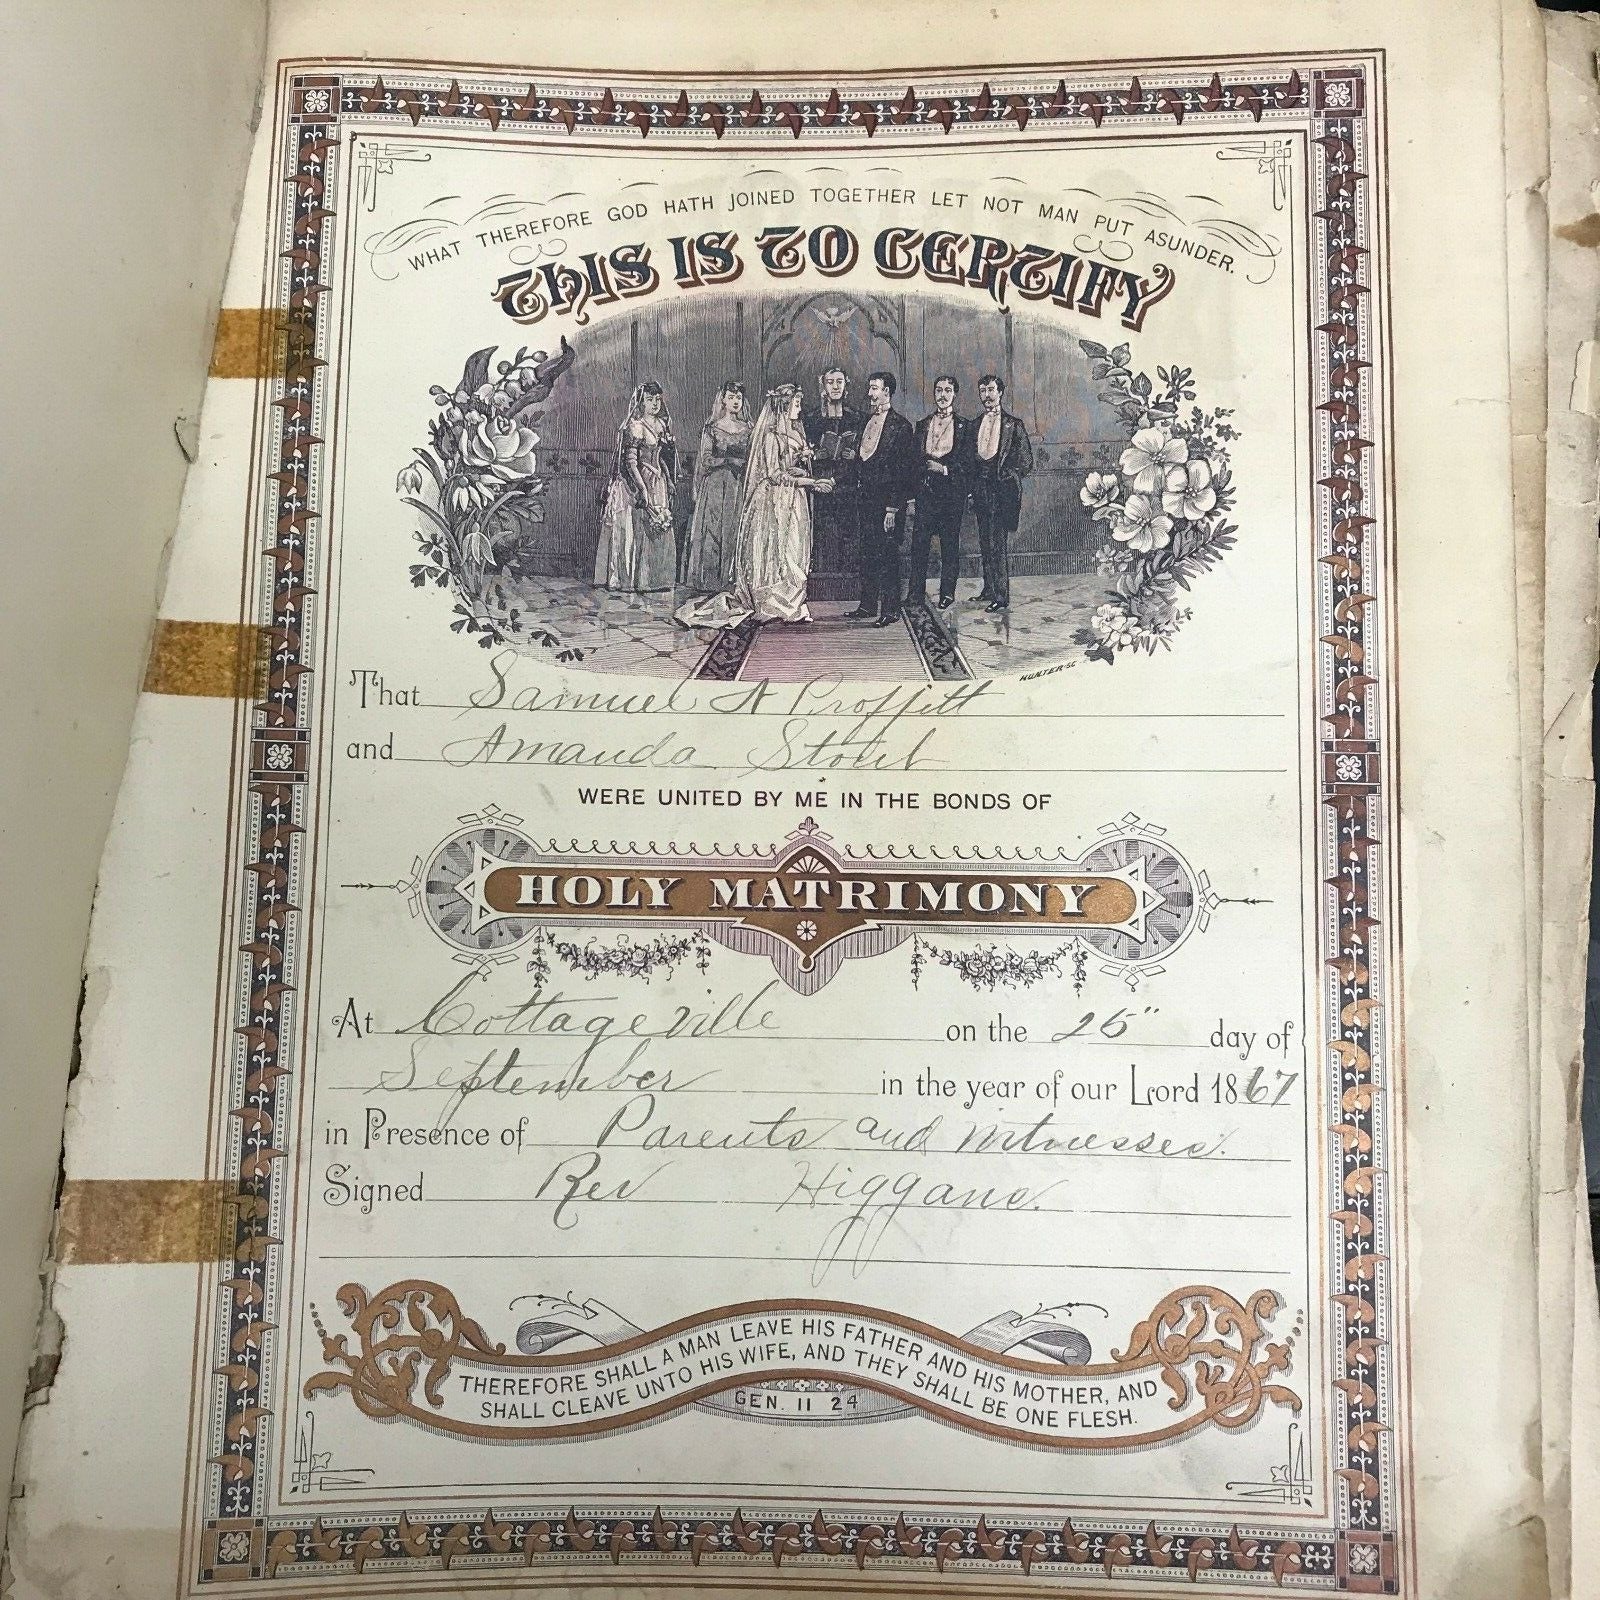 WHAT THEREFORE GOD HATH JOINED TOGETHER LET NOT MAN PUT ASUNDER.
THIS IS TO CERTIFY
HUNTER-SC
That Samuel A Proffitt
and Amanda Stout
WERE UNITED BY ME IN THE BONDS OF
HOLY MATRIMONY
At Cottageville on the 25" day of
September in the year of our Lord 1867
in Presence of Parents and Witnesses.
Signed Rev Higgans.
THEREFORE SHALL A MAN LEAVE HIS FATHER AND HIS MOTHER, AND
SHALL CLEAVE UNTO HIS WIFE, AND THEY SHALL BE ONE FLESH.
GEN. 11 24